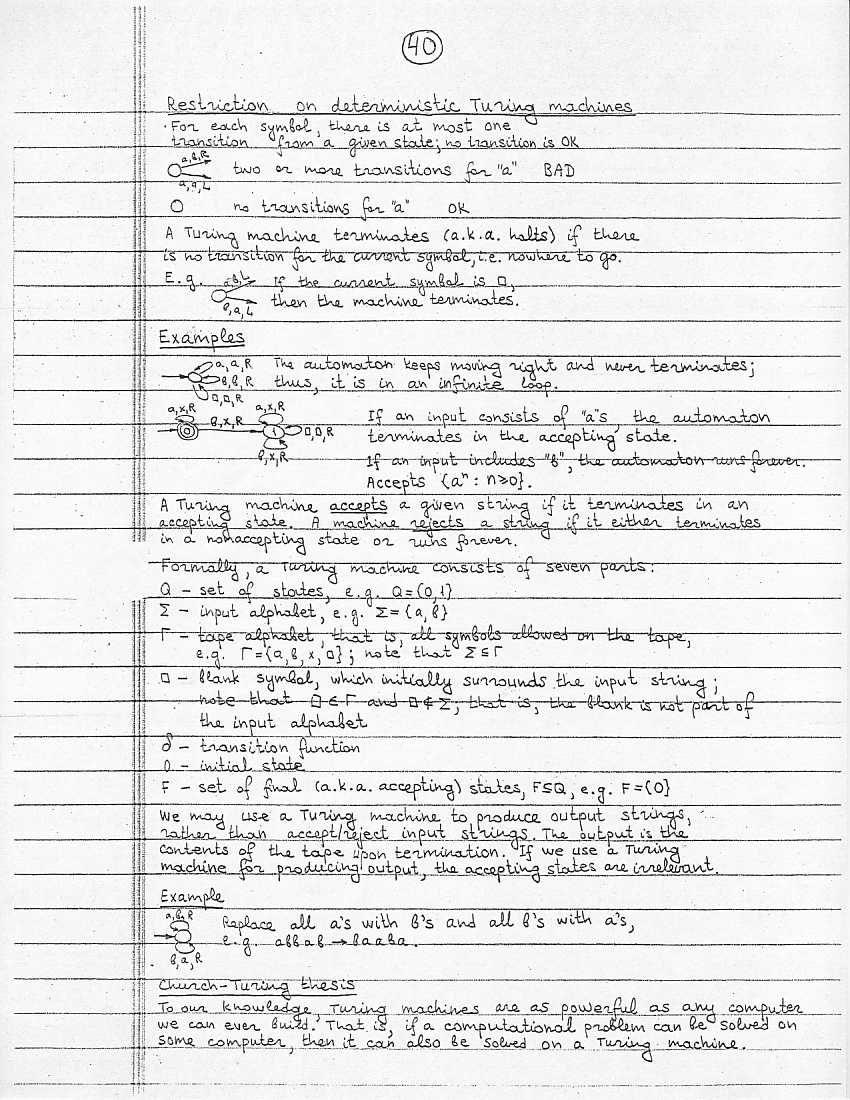 40
Restriction on deterministic Turing machines
·For each symbol, there is at most one
transition from a given state; no transition is OK
a,b,R
two or more transitions for "a" BAD
a,a,L
no transitions for "a" OK
A Turing machine terminates (a.k.a. halts) if there
is no transition for the current symbol, i.e. nowhere to go.
E.g. a,b,L If the current symbol is □,
b,a,L then the machine terminates.
Examples
a,a,R The automaton keeps moving right and never terminates;
b,b,R thus, it is in an infinite loop.
□,□,R
a,x,R a,x,R If an input consists of "a"s, the automaton
0 b,x,R 1 □,□,R terminates in the accepting state.
b,x,R If an input includes "b", the automaton runs forever.
Accepts {aⁿ : n≥0}.
A Turing machine accepts a given string if it terminates in an
accepting state. A machine rejects a string if it either terminates
in a nonaccepting state or runs forever.
Formally, a Turing machine consists of seven parts:
Q – set of states, e.g. Q={0,1}
Σ – input alphabet, e.g. Σ={a,b}
Γ – tape alphabet, that is, all symbols allowed on the tape,
e.g. Γ={a,b,x,□}; note that Σ⊆Γ
□ – blank symbol, which initially surrounds the input string;
note that □∈Γ and □∉Σ; that is, the blank is not part of
the input alphabet
δ – transition function
0 – initial state
F – set of final (a.k.a. accepting) states, F⊆Q, e.g. F={0}
We may use a Turing machine to produce output strings,
rather than accept/reject input strings. The output is the
contents of the tape upon termination. If we use a Turing
machine for producing output, the accepting states are irrelevant.
Example
a,b,R Replace all a's with b's and all b's with a's,
e.g. abbab → baaba.
b,a,R
Church–Turing thesis
To our knowledge, Turing machines are as powerful as any computer
we can ever build. That is, if a computational problem can be solved on
some computer, then it can also be solved on a Turing machine.